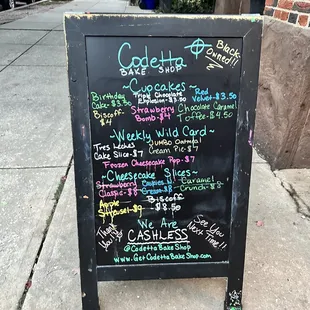 Codetta
BAKE SHOP
Black
owned!!
~Cupcakes~
Birthday
Cake-$3.50
Triple Chocolate
Explosion-$3.50
Red
Velvet-$3.50
Biscoff-
$4
Strawberry
Bomb-$4
Chocolate Caramel
Toffee-$4.50
~Weekly Wild Card~
Tres Leches
Cake Slice-$7
JUMBO Oatmeal
Cream Pie-$7
Frozen Cheesecake Pop-$7
~Cheesecake Slices~
Strawberry
Classic-$8
Cookies N
Cream-$8
Caramel
Crunch-$8
Apple
Strudel-$9
Biscoff
-$8.50
We Are
CASHLESS
Thank
You!!
See You
Next Time!!
@CodettaBakeShop
www.GetCodettaBakeShop.com